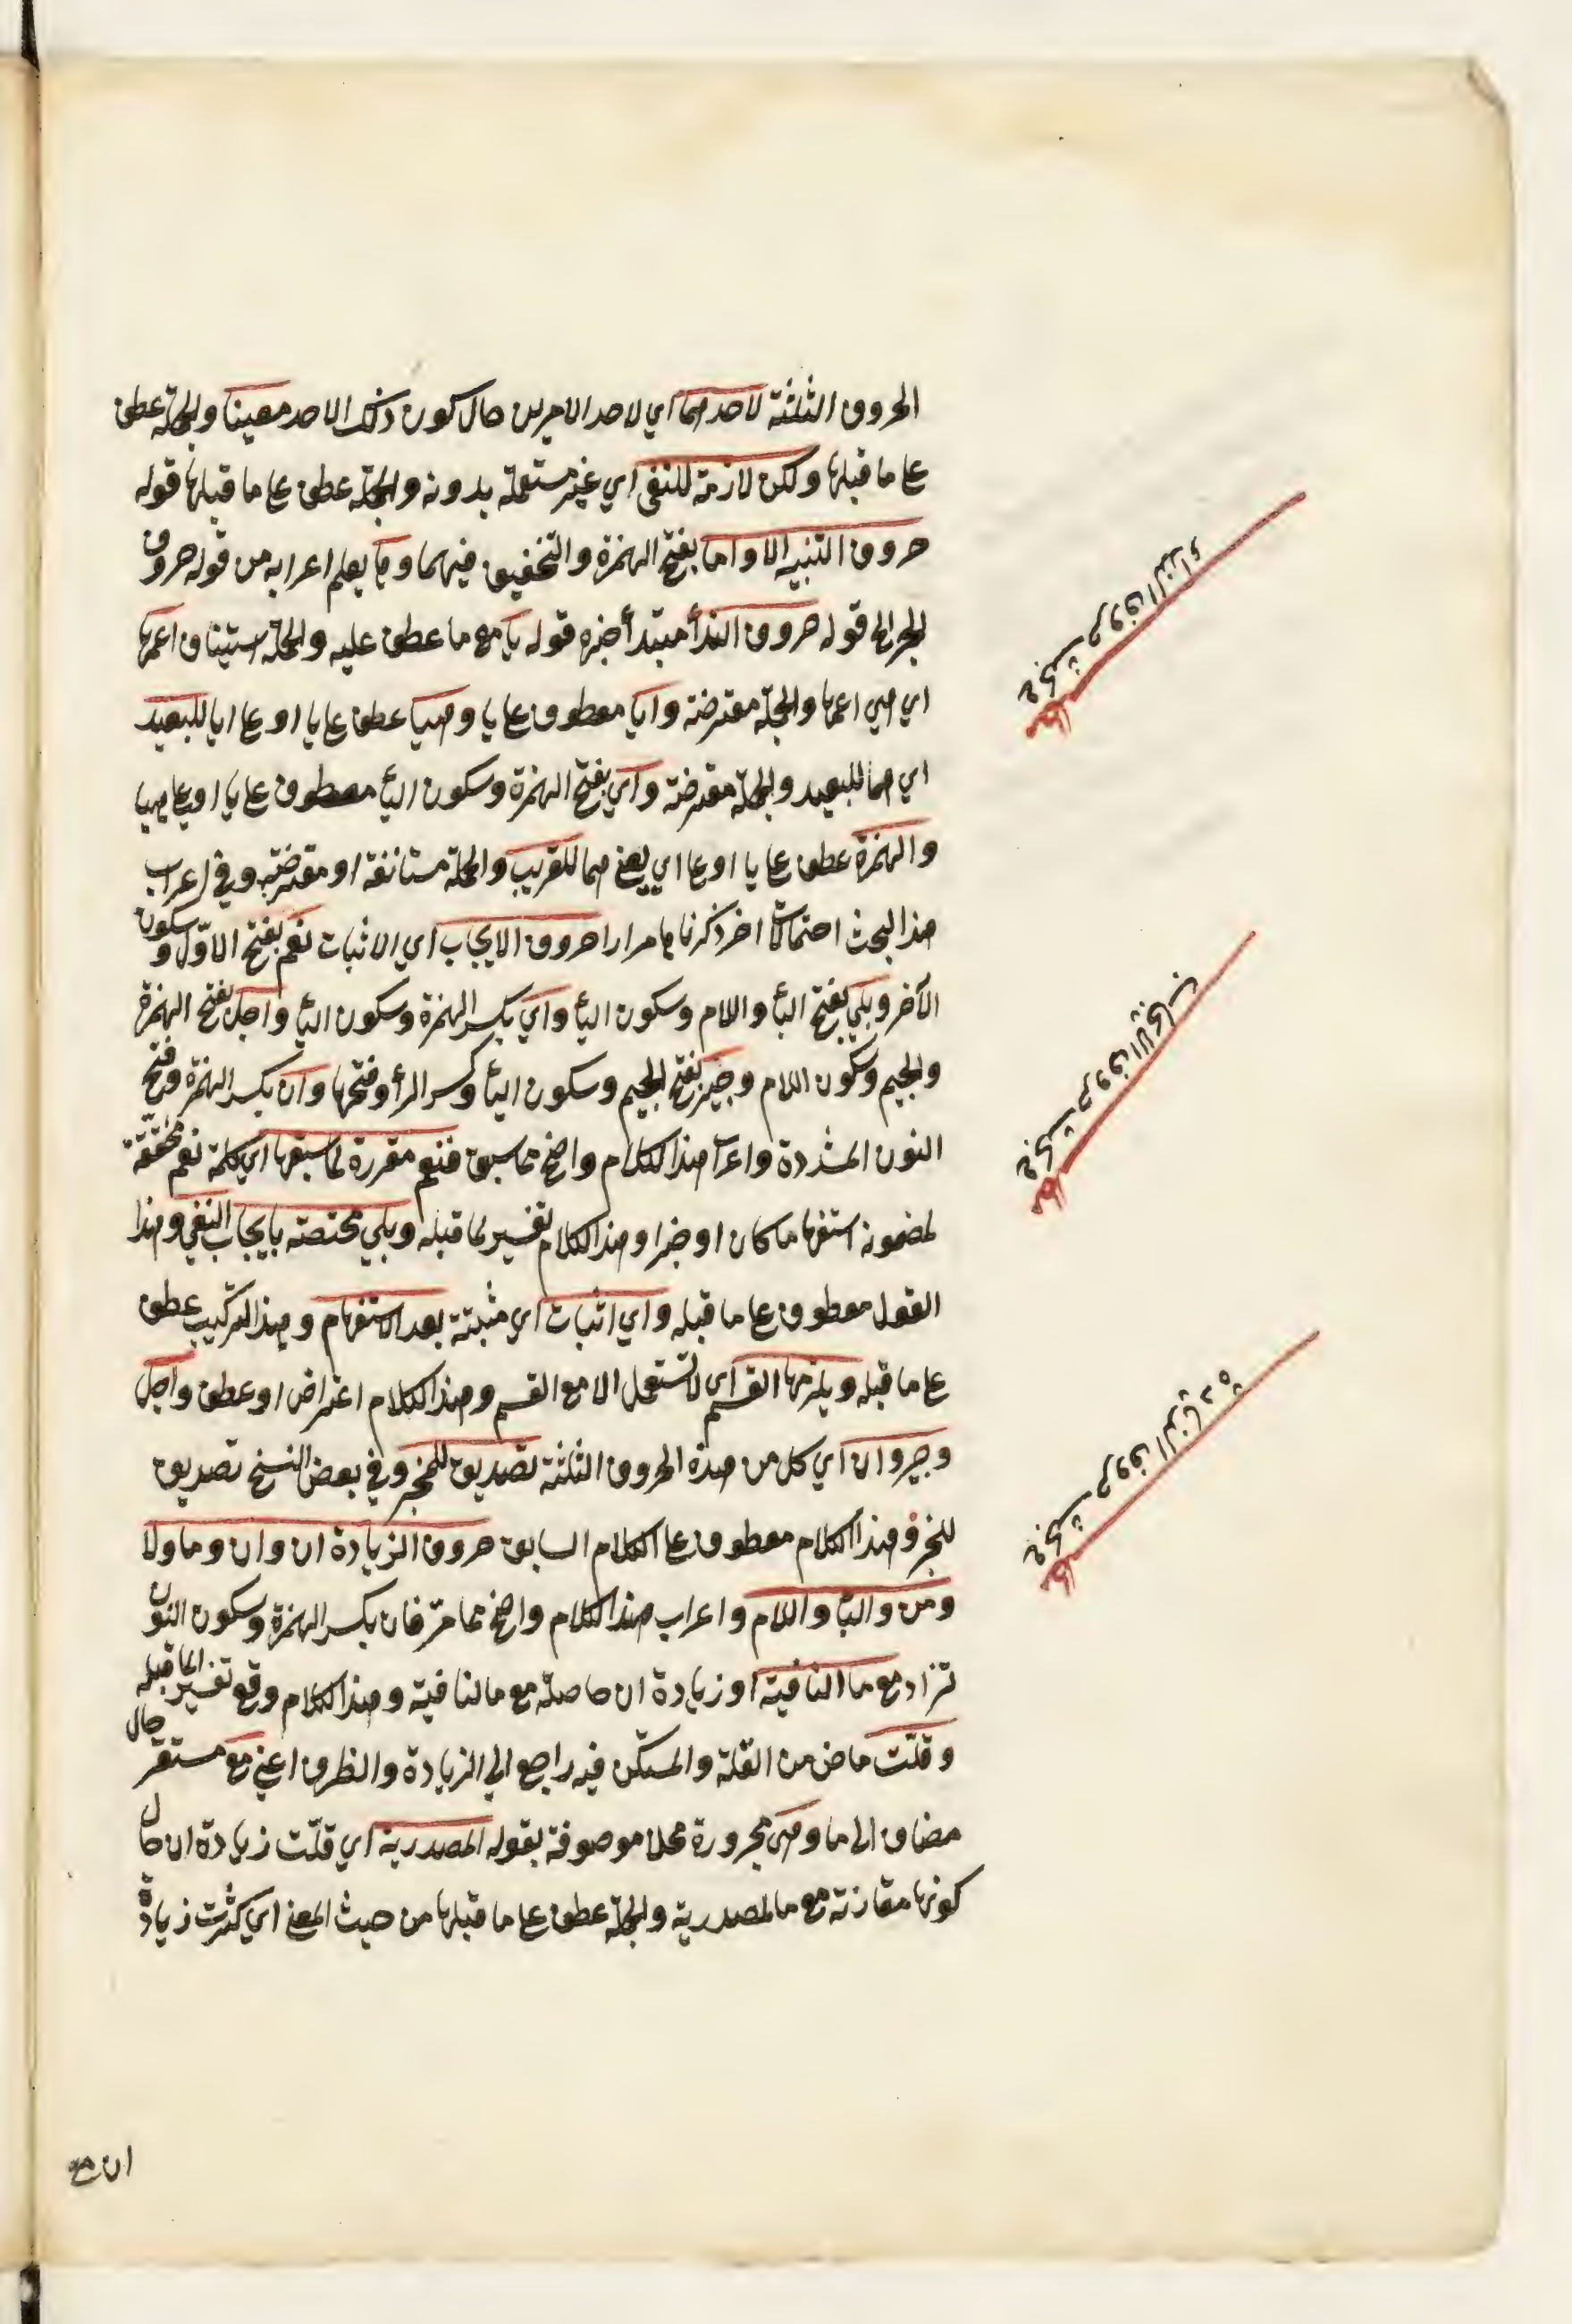 الحروف الثلثة لاحدهما اي لاحد الامرين حال كون ذلك الاحد معينا والجملة عطف
على ما قبلها ولكن لازمة للنفى اي غير مستعملة بدونه والجملة عطف على ما قبلها قوله
حروف التنبيه الا واما بفتح الهمزة والتخفيف فيهما وها يعلم اعرابه من قوله حروف
الجر الى قوله حروف الندأ مبتدأ خبره قوله يا مع ما عطف عليه والجملة استيناف اعمها
اي هي اعمها والجملة معترضة وايا معطوف على يا وهيا عطف على يا او على ايا للبعيد
اي هما للبعيد والجملة معترضة واي بفتح الهمزة وسكون اليأ معطوف على يا او على هيا
والهمزة عطف على يا او على اي يعني هما للقريب والجملة مستانفة او معترضة وفي اعراب
هذا البحث احتمالات اخر ذكرناها مرارا حروف الايجاب اي الاثبات نعم بفتح الاوّل وسكون
الآخر وبلي بفتح البأ واللام وسكون اليأ واي بكسر الهمزة وسكون اليأ واجل بفتح الهمزة
والجيم وسكون اللام وجير بفتح الجيم وسكون اليأ وكسر الرأ وفتحها وان بكسر الهمزة وفتح
النون المشددة واعراب هذا الكلام واضح مما سبق فنعم مقررة لما سبقها اي كلمة نعم محققة
لمضمونه استفهاما كان او خبرا وهذا الكلام تفسير لما قبله وبلي مختصة بايجاب النفي وهذا
القول معطوف على ما قبله واي اثبات اي مثبتة بعد الاستفهام وهذا التركيب عطف
على ما قبله ويلزمها القسم اي لا تستعمل الا مع القسم وهذا الكلام اعتراض او عطف واجل
وجير وان اي كل من هذه الحروف الثلثة تصديق للمخبر وفي بعض النسخ تصديق
للخبر وهذا الكلام معطوف على الكلام السابق حروف الزيادة ان وان وما ولا
ومن والبأ واللام واعراب هذا الكلام واضح مما مرّ فان بكسر الهمزة وسكون النون
تزاد مع ما النافية او زيادة ان حاصلة مع ما لنافية وهذا الكلام وقع تفسيرا لما قبله
وقلّت ماض من القلة والمستكن فيه راجع الى الزيادة والظرف اعني مع مستقر حال
مضاف الى ما وهى مجرورة محلا موصوفة بقوله المصدرية اي قلّت زيادة ان حال
كونها مقارنة مع ما لمصدرية والجملة عطف على ما قبلها من حيث المعنى اي كثرت زيادة
ان مع
مبحث حروف النداء
مبحث حروف الايجاب
مبحث حروف الزيادة